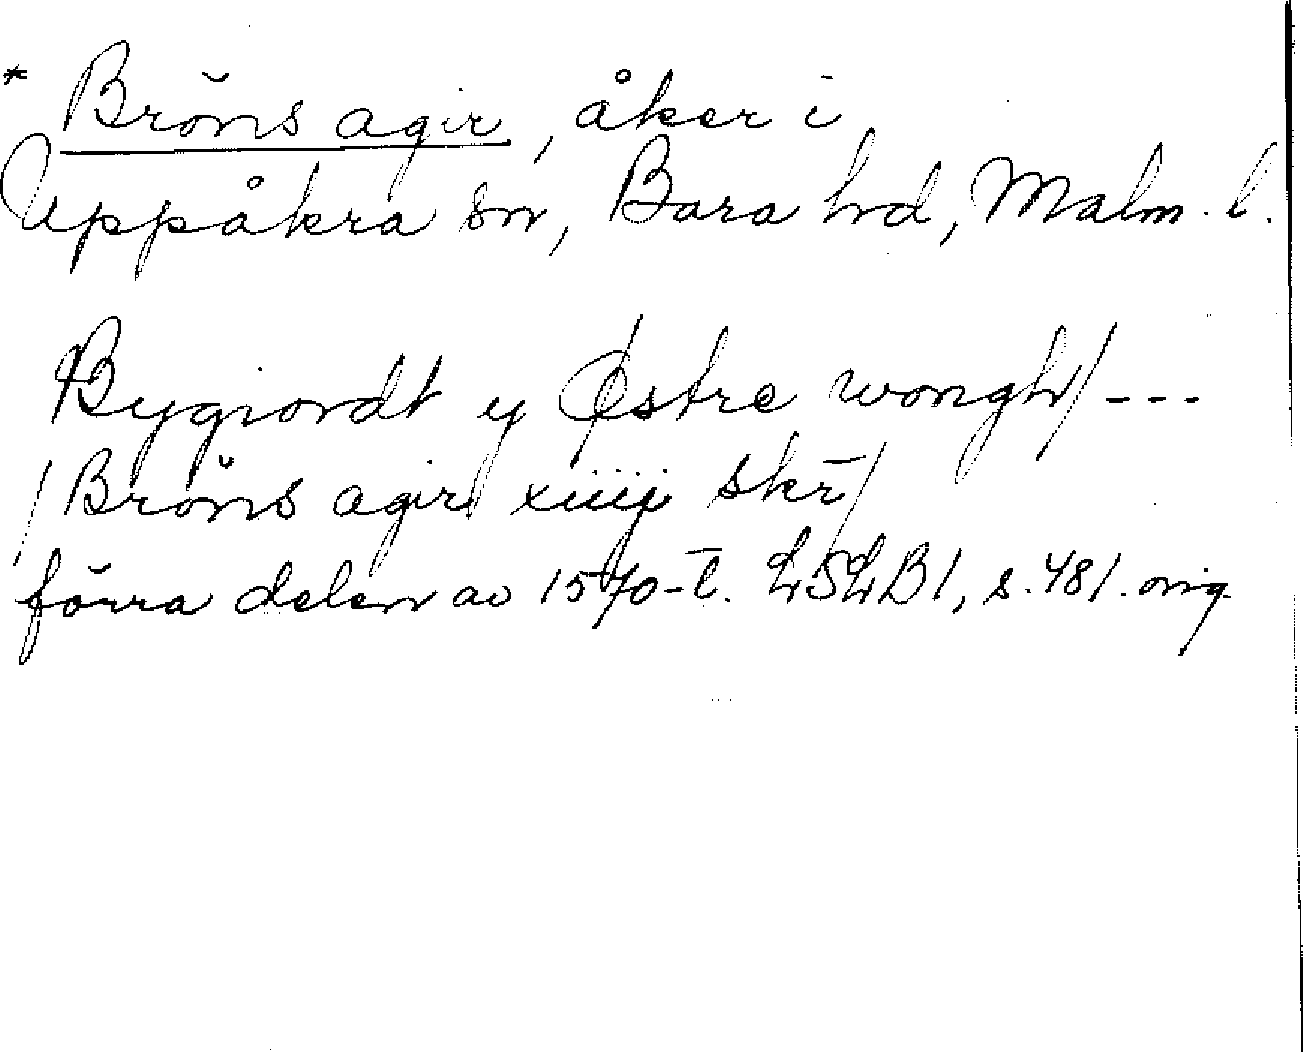 * Bröns agir, åker i
Uppåkra sn, Bara hd, Malm. l.
Bygiordt y Østre wongh/ ---
/ Bröns agir xiiij skr̄/
förra delen av 1570-t. LSLB1, s. 481. orig.